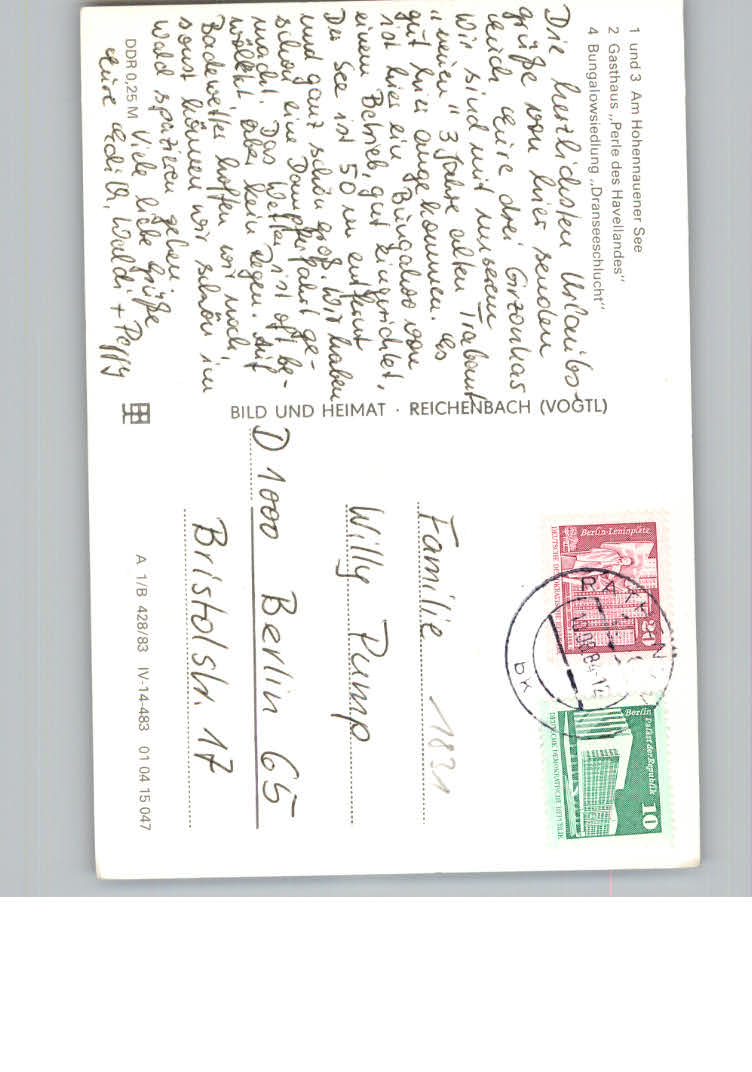 1 und 3 Am Hohennauener See
2 Gasthaus „Perle des Havellandes"
4 Bungalowsiedlung „Dranseeschlucht"
Die herzlichsten Urlaubs-
grüße von hier senden
Euch Eure drei
Wir sind mit unserem
"neuen" 3 Jahre alten Trabant
gut hier angekommen. Es
ist hier ein Bungalow von
einem Betrieb, gut eingerichtet.
Der See ist 50 m entfernt
und ganz schön groß. Wir haben
schon eine Dampferfahrt ge-
macht. Das Wetter ist oft be-
wölkt, aber kein Regen. Auf
Badewetter hoffen wir noch,
sonst können wir schön im
Wald spazieren gehen.
Viele liebe Grüße
Eure Edith, Waldi + Peggy
DDR 0,25 M
BILD UND HEIMAT · REICHENBACH (VOGTL)
Berlin-Leninplatz
DEUTSCHE DEMOKRATISCHE REPUBLIK
20
Berlin
Palast der Republik
10
DEUTSCHE DEMOKRATISCHE REPUBLIK
bk
1831
Familie
Willy Pump
D 1000 Berlin 65
Bristolstr. 17
A 1/B 428/83 IV-14-483 01 04 15 047